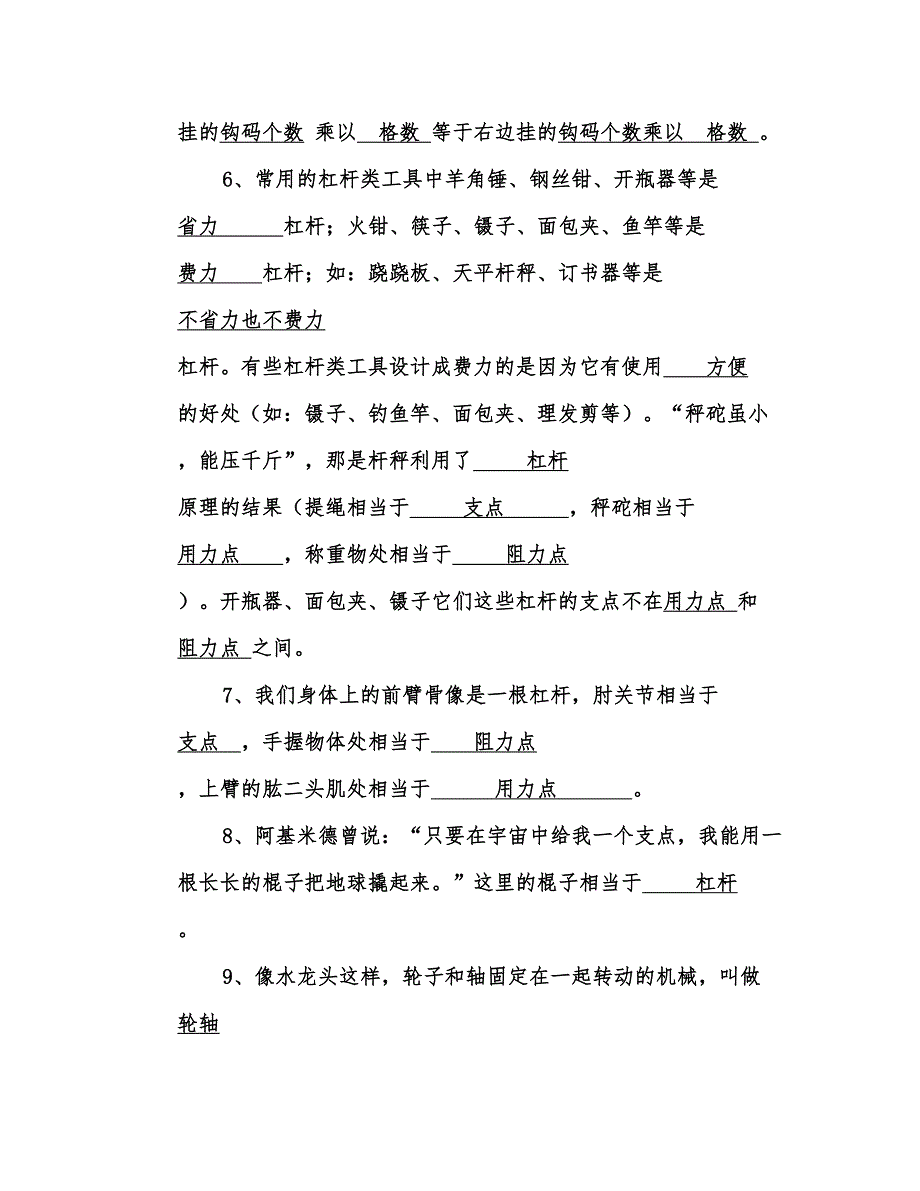 挂的钩码个数 乘以  格数 等于右边挂的钩码个数乘以  格数 。
6、常用的杠杆类工具中羊角锤、钢丝钳、开瓶器等是
省力      杠杆；火钳、筷子、镊子、面包夹、鱼竿等是
费力    杠杆；如：跷跷板、天平杆秤、订书器等是
不省力也不费力
杠杆。有些杠杆类工具设计成费力的是因为它有使用    方便
的好处（如：镊子、钓鱼竿、面包夹、理发剪等）。“秤砣虽小
，能压千斤”，那是杆秤利用了     杠杆
原理的结果（提绳相当于     支点      ，秤砣相当于
用力点    ，称重物处相当于     阻力点
）。开瓶器、面包夹、镊子它们这些杠杆的支点不在用力点 和
阻力点 之间。
7、我们身体上的前臂骨像是一根杠杆，肘关节相当于
支点  ，手握物体处相当于    阻力点
，上臂的肱二头肌处相当于      用力点       。
8、阿基米德曾说：“只要在宇宙中给我一个支点，我能用一
根长长的棍子把地球撬起来。”这里的棍子相当于     杠杆
。
9、像水龙头这样，轮子和轴固定在一起转动的机械，叫做
轮轴